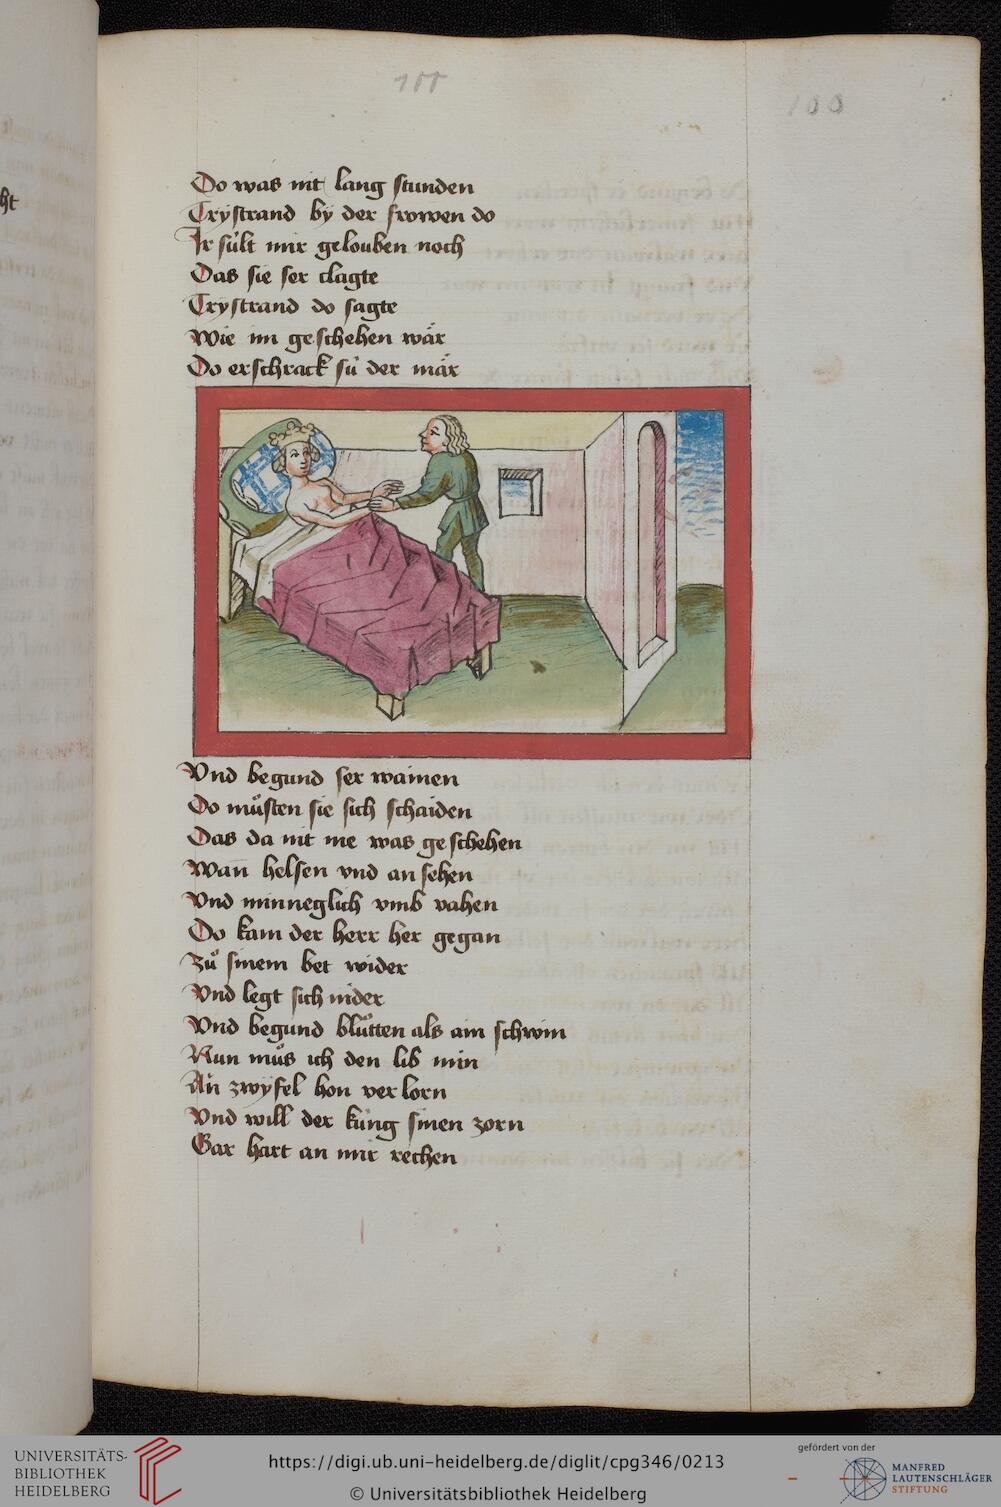 100
100
ht
Do was nit lang stunden
Trystrand by der frowen do
Ir sült mir gelouben noch
Das sie ser clagte
Trystrand do sagte
Wie im geschehen wär
Do erschrack sü der mär
Vnd begund ser wainen
Do müsten sie sich schaiden
Das da nit me was geschehen
Wan̄ helsen vnd an sehen
Vnd minneglich vmb vahen
Do kam der herr her gegan
Zuͦ sinem bet wider
Vnd legt sich nider
Vnd begund bluͦtten als ain schwin
Nun muͦs ich den lib min
An zwyfel hon verlorn
Vnd will der küng sinen zorn
Gar hart an mir rechen
UNIVERSITÄTS-
BIBLIOTHEK
HEIDELBERG
https://digi.ub.uni-heidelberg.de/diglit/cpg346/0213
© Universitätsbibliothek Heidelberg
gefördert von der
MANFRED
LAUTENSCHLÄGER
STIFTUNG